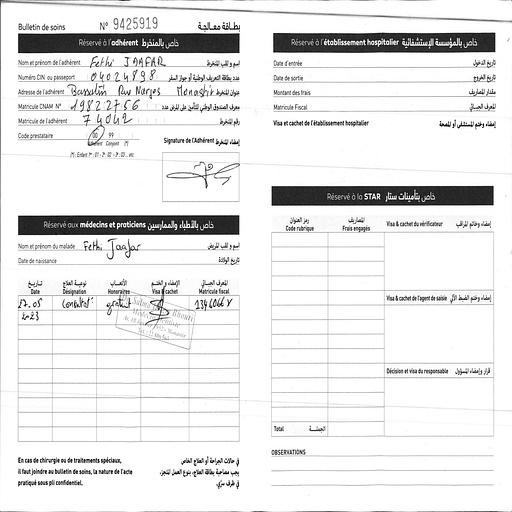 Bulletin de soins N° 9425919 بطاقة معالجة
Réservé à l'adhérent خاص بالمنخرط
Nom et prénom de l'adhérent Fethi JAAFAR إسم و لقب المنخرط
Numéro CIN ou passeport 04024898 عدد بطاقة التعريف الوطنية أو جواز السفر
Adresse de l'adhérent Bassatin Rue Narjes Monastir عنوان المنخرط
Matricule CNAM N° 19822756
Matricule de l'adhérent 74042 رقم المنخرط
Code prestataire 00 99
Adhérent Conjoint (*)
(*) : Enfant 1er : 01 - 2e : 02 - 3e : 03 ... etc
Signature de l'Adhérent إمضاء المنخرط
Réservé aux médecins et praticiens خاص بالأطباء والممارسين
Nom et prénom du malade Fethi Jaafar إسم و لقب المريض
Date de naissance تاريخ الولادة
تاريخ نوعية العلاج الأتعاب الإمضاء و الختم المعرف الجبائي
Date Désignation Honoraires Visa & cachet Matricule fiscal
27.05 gratuit
2023
En cas de chirurgie ou de traitements spéciaux,
il faut joindre au bulletin de soins, la nature de l'acte
pratiqué sous pli confidentiel.
في حالات الجراحة أو العلاج الخاص
يجب مصاحبة بطاقة العلاج، بنوع العمل المنجز،
في ظرف سري.
Réservé à l'établissement hospitalier خاص بالمؤسسة الإستشفائية
Date d'entrée تاريخ الدخول
Date de sortie تاريخ الخروج
Montant des frais مقدار المصاريف
Matricule Fiscal المعرف الجبائي
Visa et cachet de l'établissement hospitalier إمضاء وختم المستشفى أو المصحة
Réservé à la STAR خاص بتأمينات ستار
رمز العنوان المصاريف
Code rubrique Frais engagés
Visa & cachet du vérificateur إمضاء وخاتم المراقب
Visa & cachet de l'agent de saisie إمضاء وختم الضبط الآلي
Décision et visa du responsable قرار وإمضاء المسؤول
Total الجملة
OBSERVATIONS